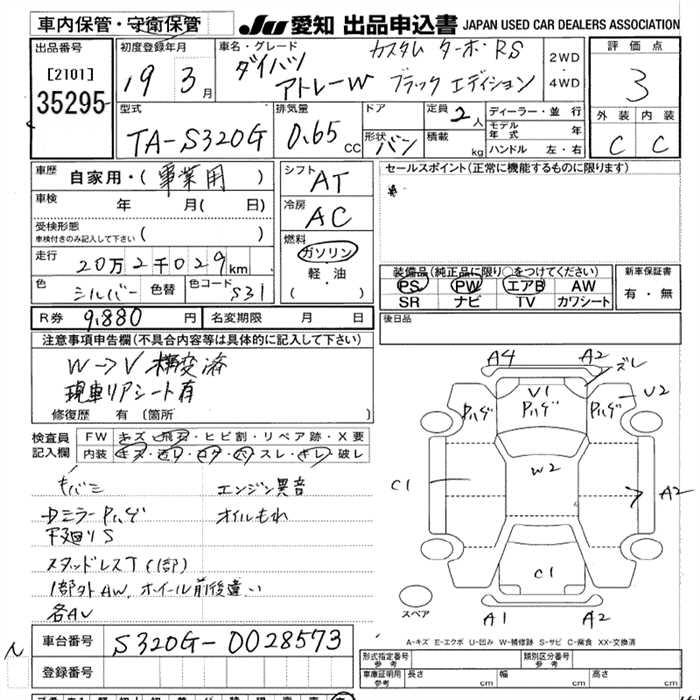 車内保管・安衛保管
JU 愛知 出品申込書 JAPAN USED CAR DEALERS ASSOCIATION
出品番号
[2101]
35295
初度登録年月
19 3月
車名・グレード
ダイハツ カスタム ターボ・RS
アトレーW ブラック エディション
2WD
・
4WD
評価点
3
外装 内装
C C
型式
TA-S320G
排気量
0.65 CC
ドア
形状 バン
定員 2人
積載 kg
ディーラー・並行
モデル年式 年
ハンドル 左・右
車歴
自家用・(事業用)
車検 年 月( 日)
受検形態
車検付きのみ記入して下さい ( )
走行
20万2千029km
色 シルバー 色替 色コード S31
シフト AT
冷房 AC
燃料
ガソリン
軽・油
( )
セールスポイント(正常に機能するものに限ります)
装備品(純正品に限り○をつけてください)
PS PW エアB AW
SR ナビ TV カワシート
新車保証書
有・無
R券 9,880円 名変期限 月 日
後日品
注意事項申告欄(不具合内容等は具体的に記入して下さい)
W→V 構変済
現車リアシート有
修復歴 有 (箇所
検査員
記入欄
FW キズ・飛石・ヒビ割・リペア跡・X要
内装 キズ・汚れ・コゲ・穴・スレ・キレ・破レ
キバミ エンジン異音
ドミラーPハゲ オイルもれ
下廻りS
スタッドレスT(1部)
1部外AW、ホイール前後違い
各AU
A4
A2
ズレ
V1
Pハゲ
Pハゲ
Pハゲ
U2
W2
C1
A2
C1
A1
A2
スペア
A-キズ E-エクボ U-凹み W-補修跡 S-サビ C-腐食 XX-交換済
車台番号 S320G-0028573
登録番号
形式指定番号 参考
類別区分番号 参考
車庫証明用 参考 長さ cm 幅 cm 高さ cm